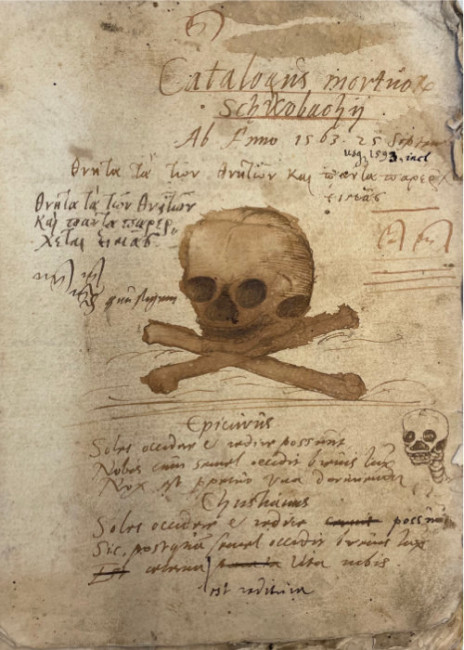 Catalogus mortuor
Schwobachij
Ab Anno 1563. 25 Septem
usq. 1593. incl
θνητὰ τὰ τῶν θνητῶν και πάντα παρερχ
ἡμᾶς
θνητὰ τὰ τῶν θνητῶν
Και πάντα παρερ
χεται ἡμᾶς
Epicurus
Soles occidere & redire possunt
Nobis cum semel occidit brevis lux
Nox est perpetuo una dormienda
Christianus
Soles occidere & redire possunt
Sic, postquam semel occidit brevis lux
aeterna vita nobis
est reditura